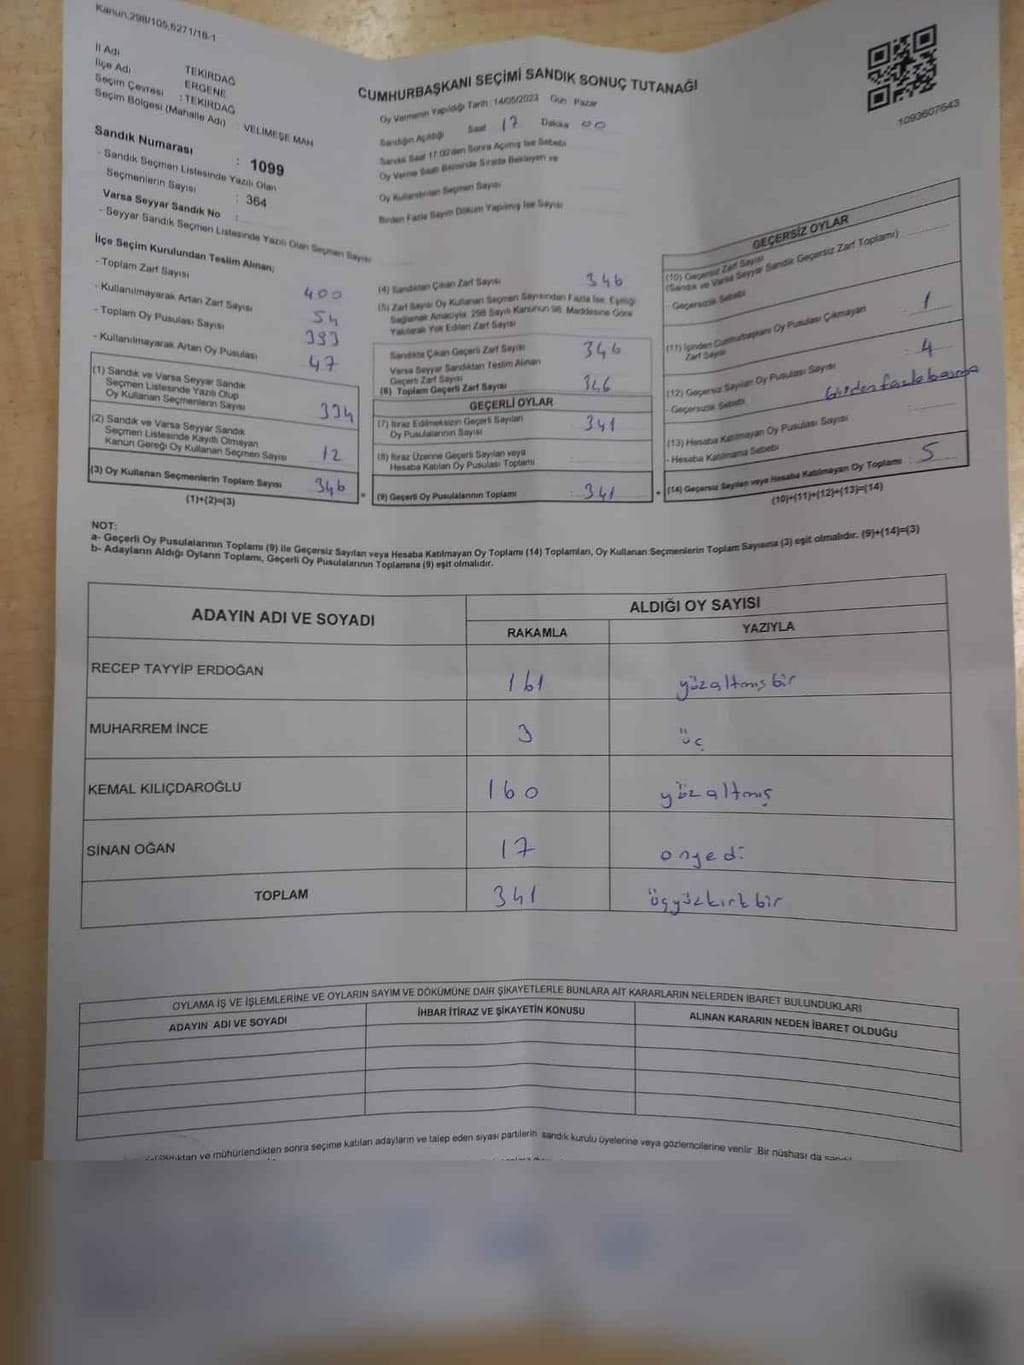 Kanun,298/105,6271/16-1
İl Adı TEKİRDAĞ
İlçe Adı ERGENE
Seçim Çevresi : TEKİRDAĞ
Seçim Bölgesi (Mahalle Adı) VELİMEŞE MAH
Sandık Numarası : 1099
- Sandık Seçmen Listesinde Yazılı Olan
Seçmenlerin Sayısı : 364
Varsa Seyyar Sandık No :
- Seyyar Sandık Seçmen Listesinde Yazılı Olan Seçmen Sayısı
CUMHURBAŞKANI SEÇİMİ SANDIK SONUÇ TUTANAĞI
Oy Vermenin Yapıldığı Tarih : 14/05/2023 Gün Pazar
Sandığın Açıldığı Saat 17 Dakika 00
Sandık Saat 17:00'den Sonra Açılmış İse Sebebi
Oy Verme Saati Bitiminde Sırada Bekleyen ve
Oy Kullandırılan Seçmen Sayısı
Birden Fazla Sayım Döküm Yapılmış İse Sayısı
1093607643
İlçe Seçim Kurulundan Teslim Alınan;
- Toplam Zarf Sayısı 400
- Kullanılmayarak Artan Zarf Sayısı 54
- Toplam Oy Pusulası Sayısı 393
- Kullanılmayarak Artan Oy Pusulası 47
(1) Sandık ve Varsa Seyyar Sandık
Seçmen Listesinde Yazılı Olup
Oy Kullanan Seçmenlerin Sayısı 334
(2) Sandık ve Varsa Seyyar Sandık
Seçmen Listesinde Kayıtlı Olmayan
Kanun Gereği Oy Kullanan Seçmen Sayısı 12
(3) Oy Kullanan Seçmenlerin Toplam Sayısı 346
(1)+(2)=(3)
(4) Sandıktan Çıkan Zarf Sayısı 346
(5) Zarf Sayısı Oy Kullanan Seçmen Sayısından Fazla İse, Eşitliği
Sağlamak Amacıyla, 298 Sayılı Kanunun 98. Maddesine Göre
Yakılarak Yok Edilen Zarf Sayısı
Sandıkta Çıkan Geçerli Zarf Sayısı 346
Varsa Seyyar Sandıktan Teslim Alınan
Geçerli Zarf Sayısı
(6) Toplam Geçerli Zarf Sayısı 346
GEÇERLİ OYLAR
(7) İtiraz Edilmeksizin Geçerli Sayılan
Oy Pusulalarının Sayısı 341
(8) İtiraz Üzerine Geçerli Sayılan veya
Hesaba Katılan Oy Pusulası Toplamı
(9) Geçerli Oy Pusulalarının Toplamı : 341
GEÇERSİZ OYLAR
(10) Geçersiz Zarf Sayısı
(Sandık ve Varsa Seyyar Sandık Geçersiz Zarf Toplamı)
- Geçersizlik Sebebi
(11) İçinden Cumhurbaşkanı Oy Pusulası Çıkmayan
Zarf Sayısı 1
(12) Geçersiz Sayılan Oy Pusulası Sayısı : 4
- Geçersizlik Sebebi : fazla basma
(13) Hesaba Katılmayan Oy Pusulası Sayısı
- Hesaba Katılmama Sebebi :
(14) Geçersiz Sayılan veya Hesaba Katılmayan Oy Toplamı : 5
(10)+(11)+(12)+(13)=(14)
NOT:
a- Geçerli Oy Pusulalarının Toplamı (9) ile Geçersiz Sayılan veya Hesaba Katılmayan Oy Toplamı (14) Toplamları, Oy Kullanan Seçmenlerin Toplam Sayısına (3) eşit olmalıdır. (9)+(14)=(3)
b- Adayların Aldığı Oyların Toplamı, Geçerli Oy Pusulalarının Toplamına (9) eşit olmalıdır.
ADAYIN ADI VE SOYADI ALDIĞI OY SAYISI
RAKAMLA YAZIYLA
RECEP TAYYİP ERDOĞAN 161 yüzaltmışbir
MUHARREM İNCE 3 üç
KEMAL KILIÇDAROĞLU 160 yüzaltmış
SİNAN OĞAN 17 onyedi
TOPLAM 341 üçyüzkırkbir
OYLAMA İŞ VE İŞLEMLERİNE VE OYLARIN SAYIM VE DÖKÜMÜNE DAİR ŞİKAYETLERLE BUNLARA AİT KARARLARIN NELERDEN İBARET BULUNDUKLARI
ADAYIN ADI VE SOYADI İHBAR İTİRAZ VE ŞİKAYETİN KONUSU ALINAN KARARIN NEDEN İBARET OLDUĞU
ve mühürlendikten sonra seçime katılan adayların ve talep eden siyasi partilerin sandık kurulu üyelerine veya gözlemcilerine verilir. Bir nüshası da